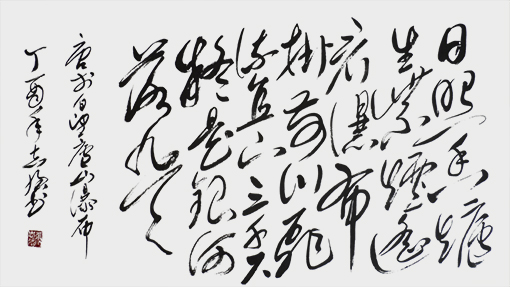 日照香爐
生紫煙遙
看瀑布
掛前川飛
流直下三千尺
疑是银河
落九天
唐李白望廬山瀑布
丁酉年志书